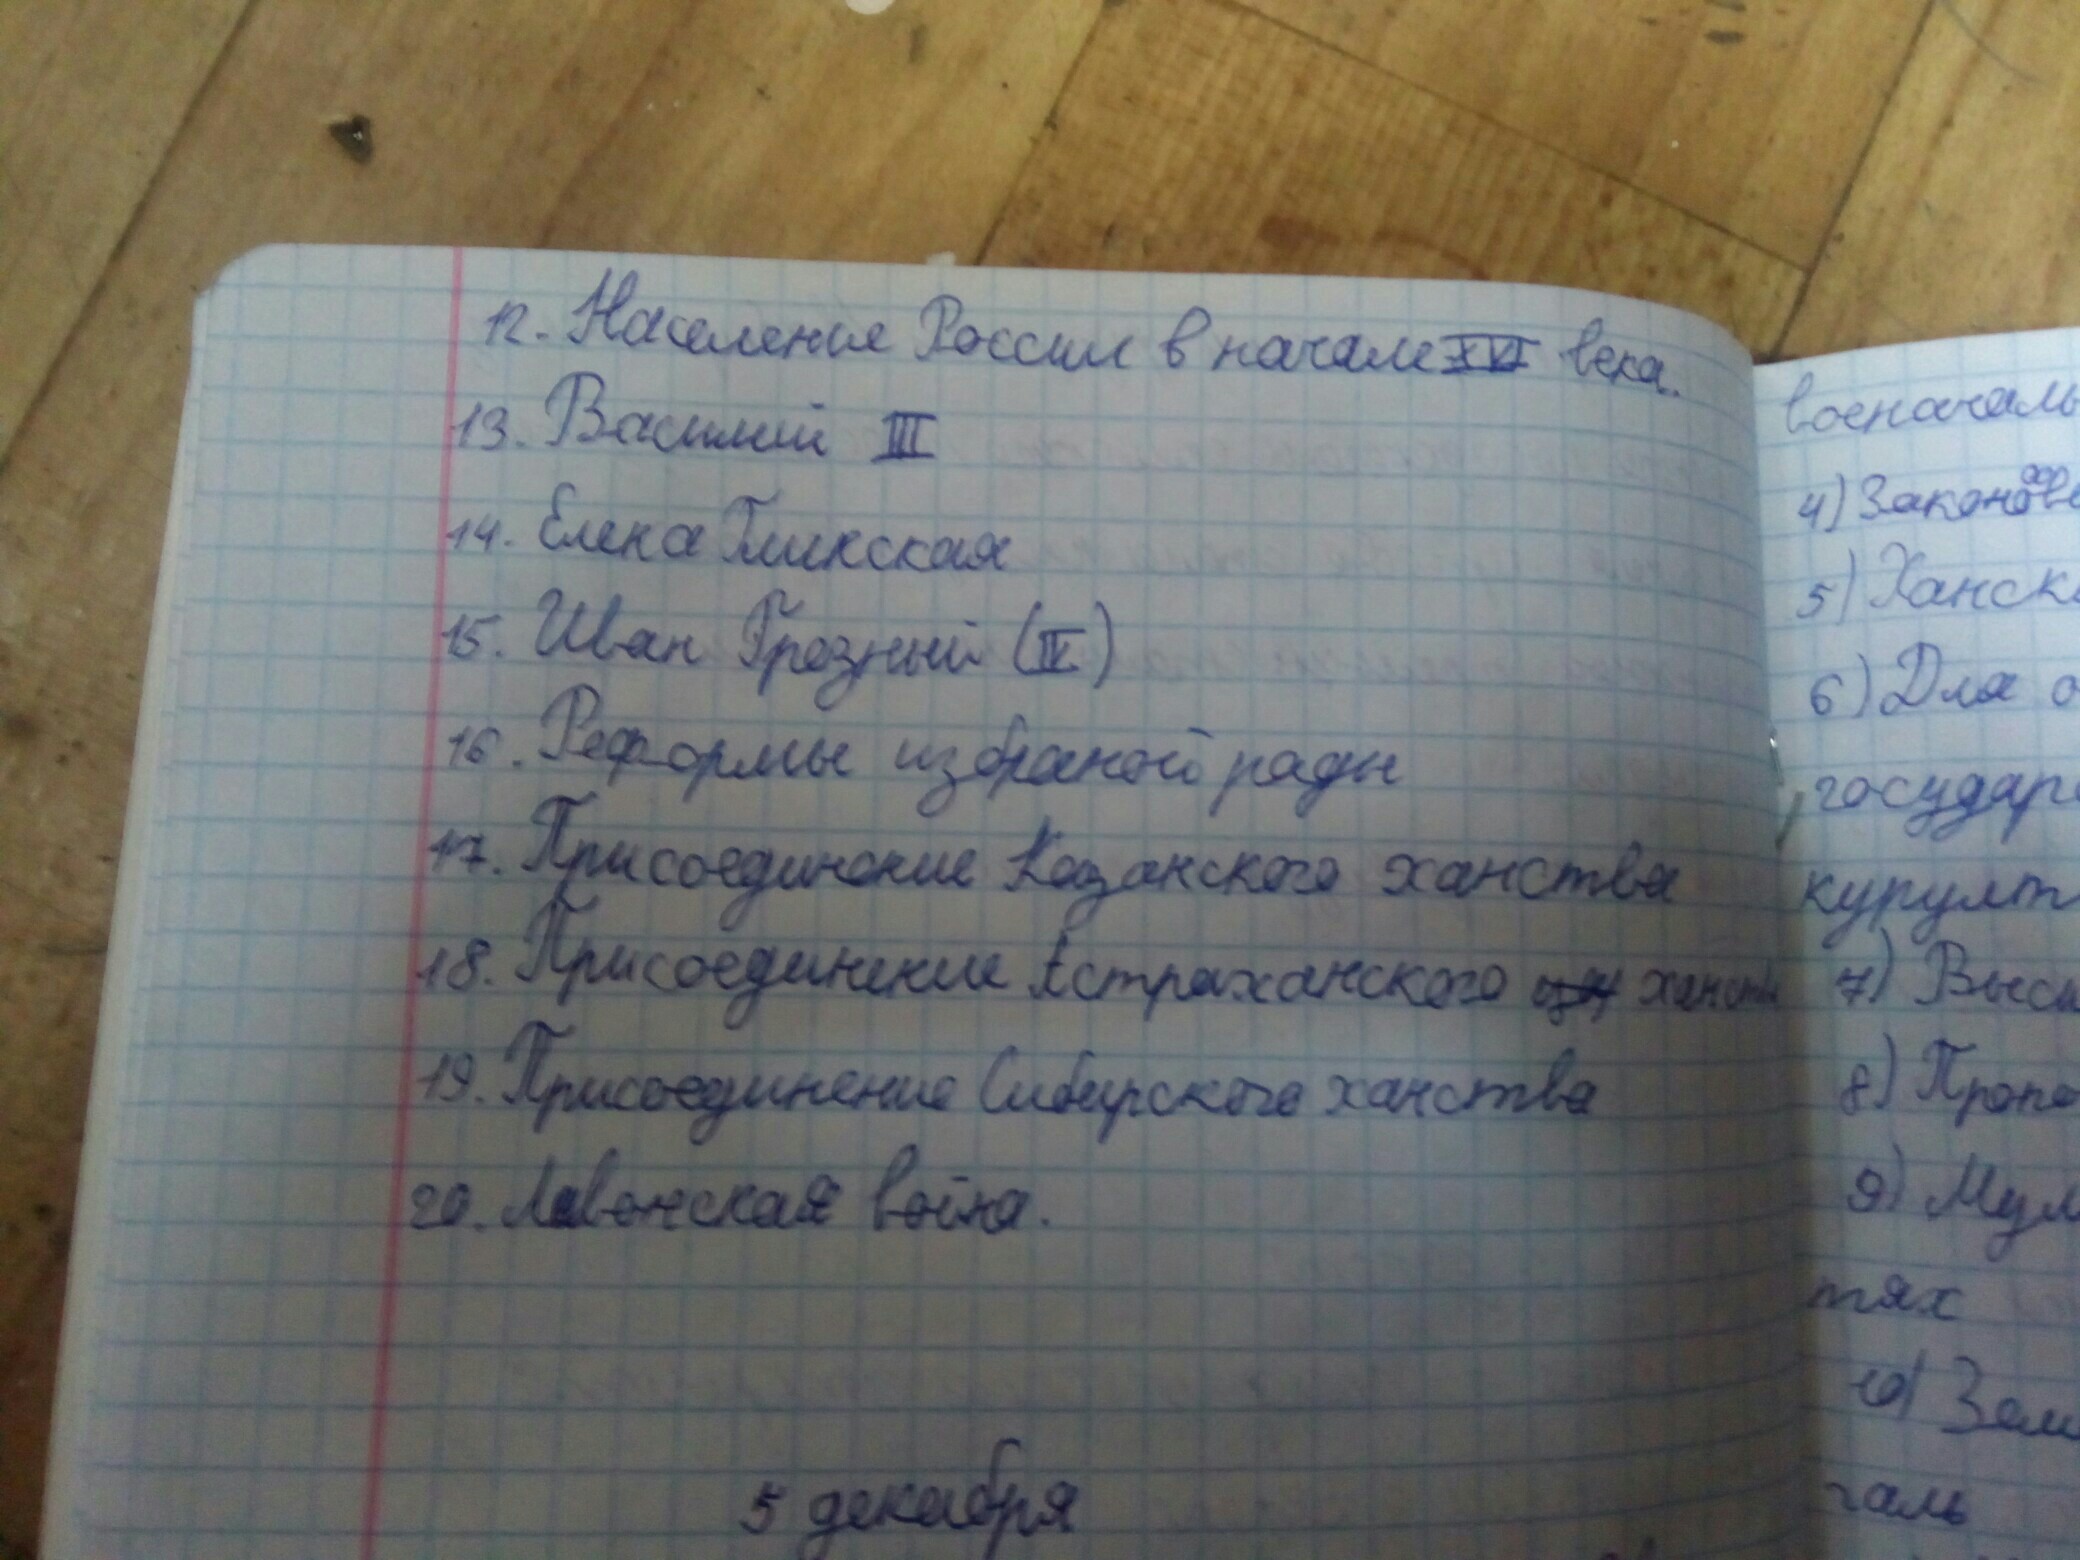 12. Население России в начале XVI века.
13. Василий III
14. Елена Глинская
15. Иван Грозный (IV)
16. Реформы избраной рады
17. Присоединение Казанского ханства
18. Присоединение Астраханского ханства
19. Присоединение Сибирского ханства
20. Ливонская война.
5 декабря
военачаль
4) Законов
5) Ханск
6) Для о
государ
курулт
7) Высш
8) Пропо
9) Мул
тях
10) Зем
галь